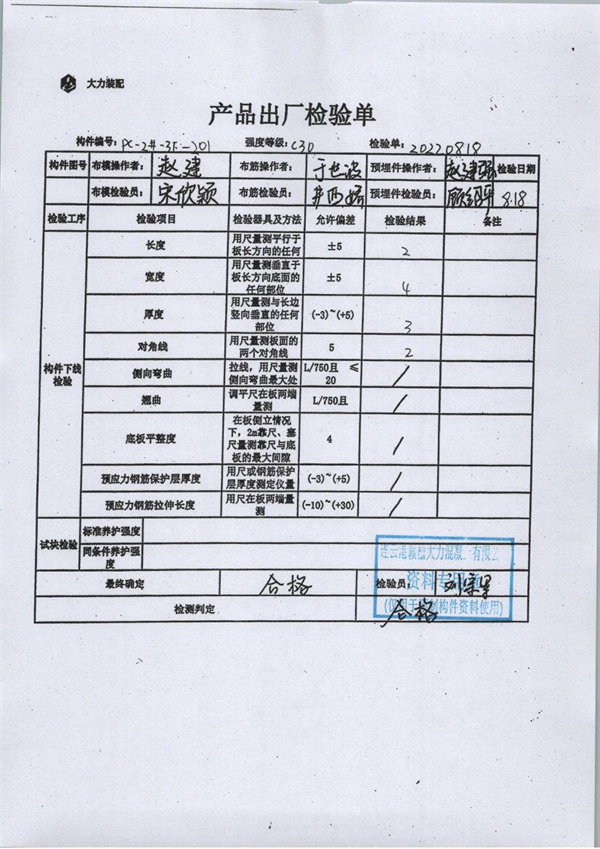 大力装配
产品出厂检验单
构件编号: PC-2#-3F-201 强度等级: C30 检验单: 20220818
构件图号 布模操作者: 赵建 布筋操作者: 于世波 预埋件操作者: 赵建 检验日期
布模检验员: 宋欣颖 布筋检验员: 预埋件检验员: 8.18
检验工序 检验项目 检验器具及方法 允许偏差 检验结果 备注
构件下线检验
长度 用尺量测平行于板长方向的任何 ±5 2
宽度 用尺量测垂直于板长方向底面的任何部位 ±5 4
厚度 用尺量测与长边竖向垂直的任何部位 (-3)~(+5) 3
对角线 用尺量测板面的两个对角线 5 2
侧向弯曲 拉线，用尺量测侧向弯曲最大处 L/750且 ≤20 /
翘曲 调平尺在板两端量测 L/750且 /
底板平整度 在板侧立情况下，2m靠尺、塞尺量测靠尺与底板的最大间隙 4 /
预应力钢筋保护层厚度 用尺或钢筋保护层厚度测定仪量 (-3)~(+5) /
预应力钢筋拉伸长度 用尺在板两端量测 (-10)~(+30) /
试块检验 标准养护强度
同条件养护强度
最终确定 合格 检验员:
检测判定 合格
大力混凝 有限公
资料专用
构件资料使用)